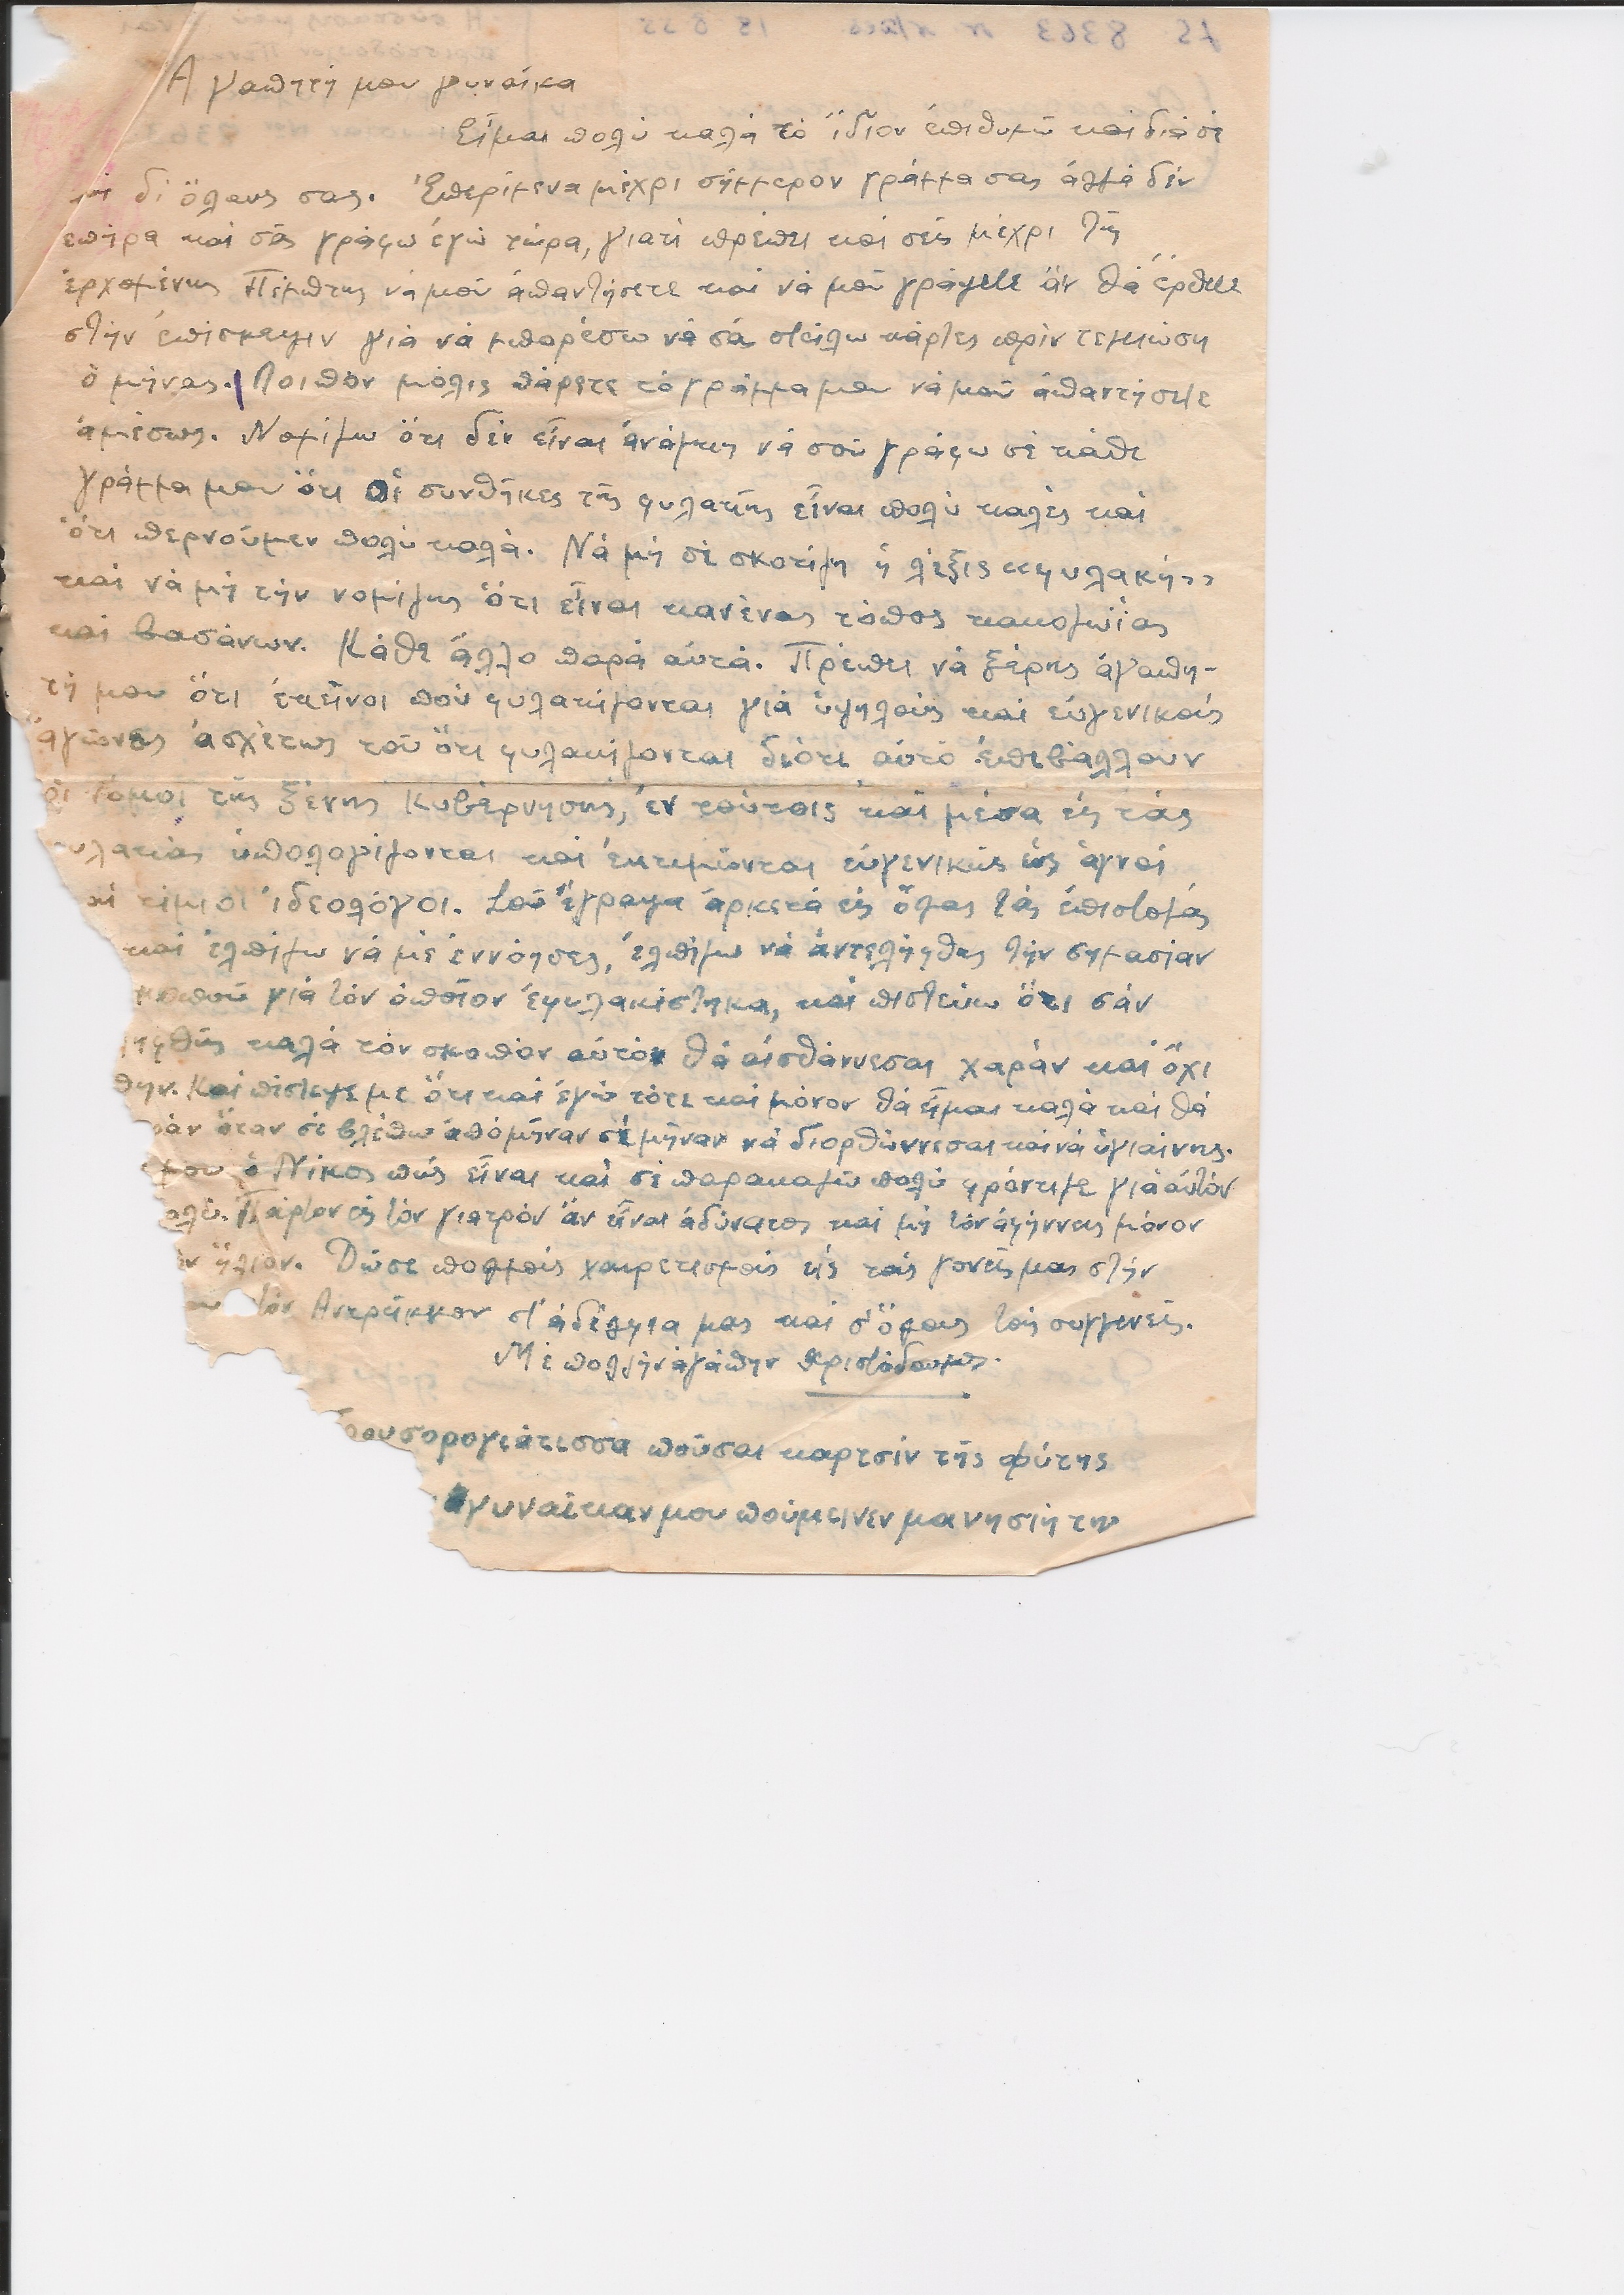 Ἀγαπητή μου γυναίκα
Εἶμαι πολύ καλά τό ἴδιον ἐπιθυμῶ καί διά σέ
καί δι ὅλους σας. Ἐπερίμενα μέχρι σήμμερον γράμμα σας ἀλλά δέν
ἐπήρα καί σᾶς γράφω ἐγώ τώρα, γιατί πρέπει καί σεῖς μέχρι τῆς
ἐρχομένης Πέμπτης νά μοῦ ἀπαντήσετε καί νά μοῦ γράψετε ἄν θά ἔρθετε
στήν ἐπίσκεψιν γιά νά μπορέσω νά σᾶ στείλω κάρτες πρίν τελειώση
ὁ μήνας. Λοιπόν μόλις πάρετε τό γράμμα μου νά μοῦ ἀπαντήσετε
ἀμέσως. Νομίζω ὅτι δέν εἶναι ἀνάγκης νά σοῦ γράφω σέ κάθε
γράμμα μου ὅτι οἱ συνθῆκες τῆς φυλακῆς εἶναι πολύ καλές καί
ὅτι περνοῦμεν πολύ καλά. Νά μή σέ σκοτίζη ἡ λέξις «φυλακή»
καί νά μή τήν νομίζης ὅτι εἶναι κανένας τόπος κακοζωΐας
καί βασάνων. Κάθε ἄλλο παρά αὐτά. Πρέπει νά ξέρης ἀγαπη-
τή μου ὅτι ἐκεῖνοι πού φυλακίζονται γιά ὑψηλούς καί εὐγενικούς
ἀγώνας ἀσχέτως τοῦ ὅτι φυλακίζονται διότι αὐτό ἐπιβάλλουν
οἱ νόμοι τῆς ξένης Κυβέρνησης, ἐν τούτοις καί μέσα εἰς τάς
φυλακάς ὑπολογίζονται καί ἐκτιμῶνται εὐγενικῶς ὡς ἁγνοί
καί τίμιοι ἰδεολόγοι. Σοῦ ἔγραψα ἀρκετά εἰς ὅλας τάς ἐπιστολάς
καί ἐλπίζω νά μέ ἐννόησες, ἐλπίζω νά ἀντελήφθης τήν σημασίαν
σκοποῦ γιά τόν ὁποῖον ἐφυλακίστηκα, καί πιστεύω ὅτι σάν
ηφθῆς καλά τόν σκοπόν αὐτόν θά αἰσθάννεσαι χαράν καί ὄχι
πην. Καί πίστεψε με ὅτι καί ἐγώ τότε καί μόνον θά εἶμαι καλά καί θά
ράν ὅταν σέ βλέπω ἀπό μῆναν σέ μῆναν νά διορθώννεσαι καί νά ὑγιαίνης.
μου ὁ Νίκος πώς εἶναι καί σέ παρακαλῶ πολύ φρόντιζε γιά αὐτόν
πολύ. Πάρτον εἰς τόν γιατρόν ἄν εἶναι ἀδύνατος καί μή τόν ἀφήννεις μόνον
ν ἥλιον. Δῶσε πολλούς χαιρετισμούς εἰς τούς γονεῖς μας στήν
τόν Αντρίκκον στ' ἀδέλφια μας καί σ' ὅλους τούς συγγενεῖς.
Μέ πολλήν ἀγάπην Χριστόδουλος.
ρουσορογιάτισσα ποῦσαι καρτσίν τῆς Φύτης
γυναῖκαν μου πούμεινεν μανησιή της